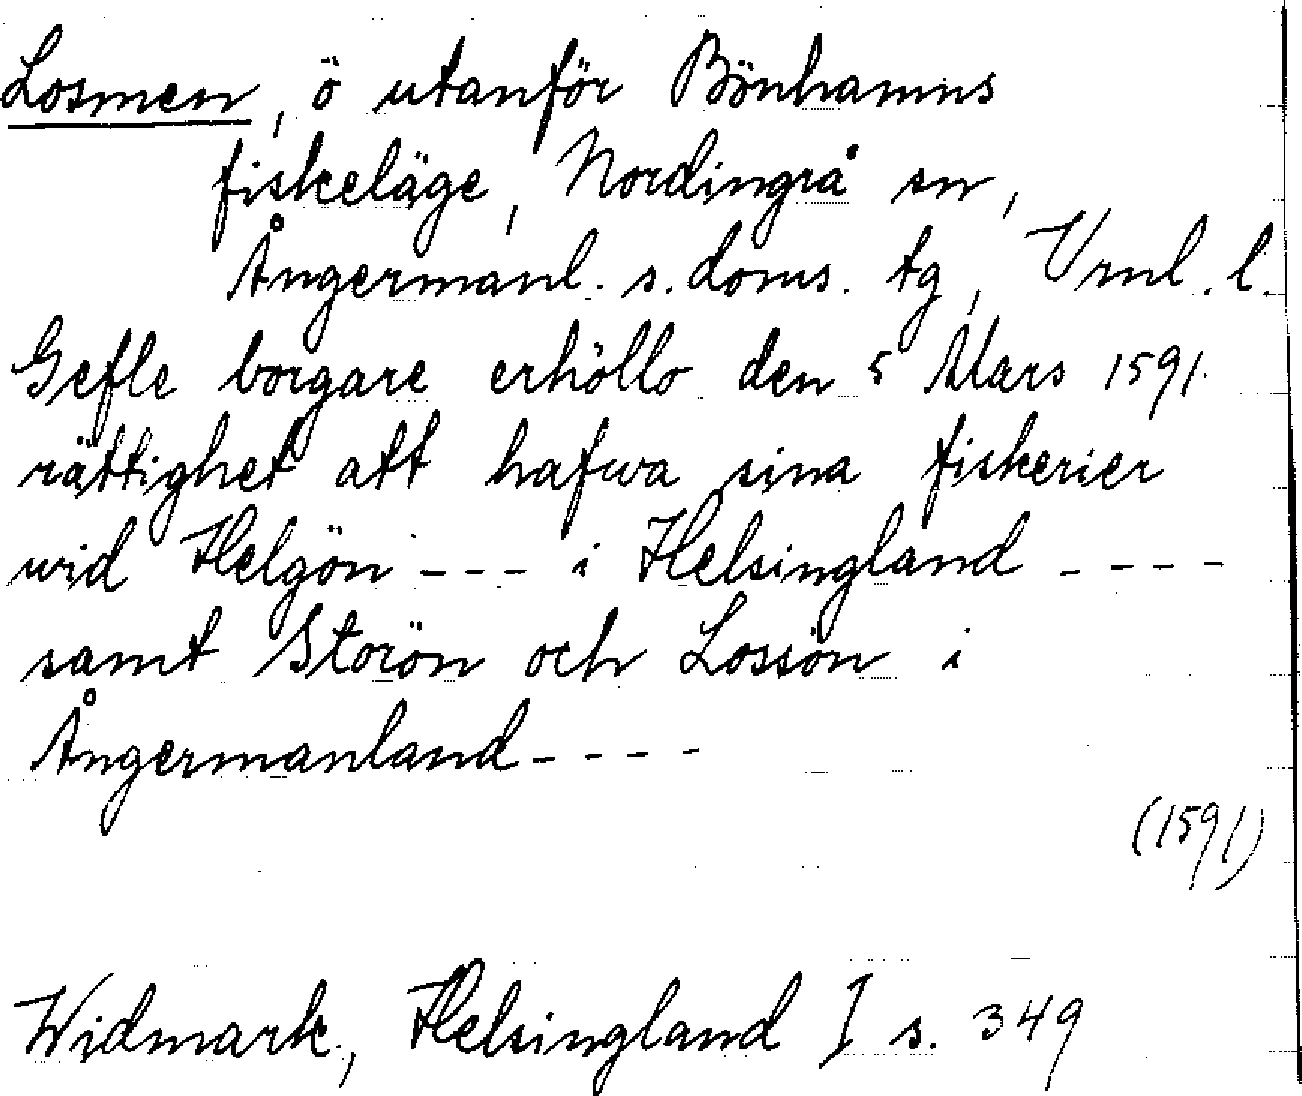 Losmen, ö utanför Bönhamns
fiskeläge, Nordingrå sn,
Ångermanl. s. doms. tg, Vrnl. l.
Gefle borgare erhöllo den 5 Mars 1591.
rättighet att hafwa sina fiskerier
wid Helgön --- i Helsingland ----
samt Storön och Lossön i
Ångermanland ----
(1591)
Widmark, Helsingland I s. 349